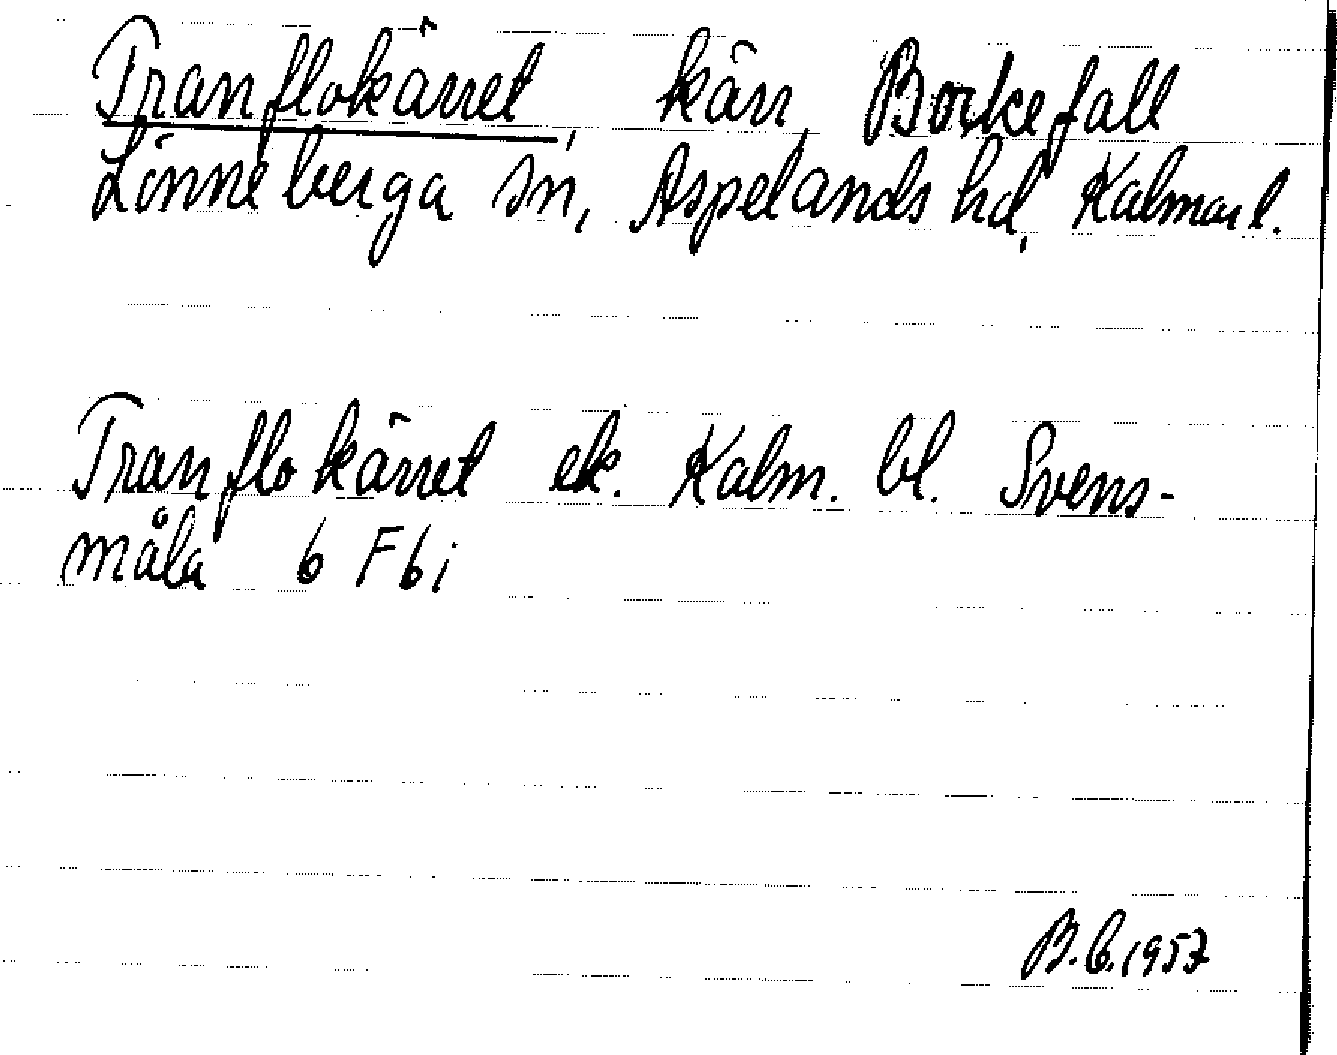 Tranflokärret, kärr, Borkefall
Lönneberga sn, Aspelands hd, Kalmar l.
Tranflokärret ek. Kalm. bl. Svens-
måla 6 F 6 i
B.E. 1957